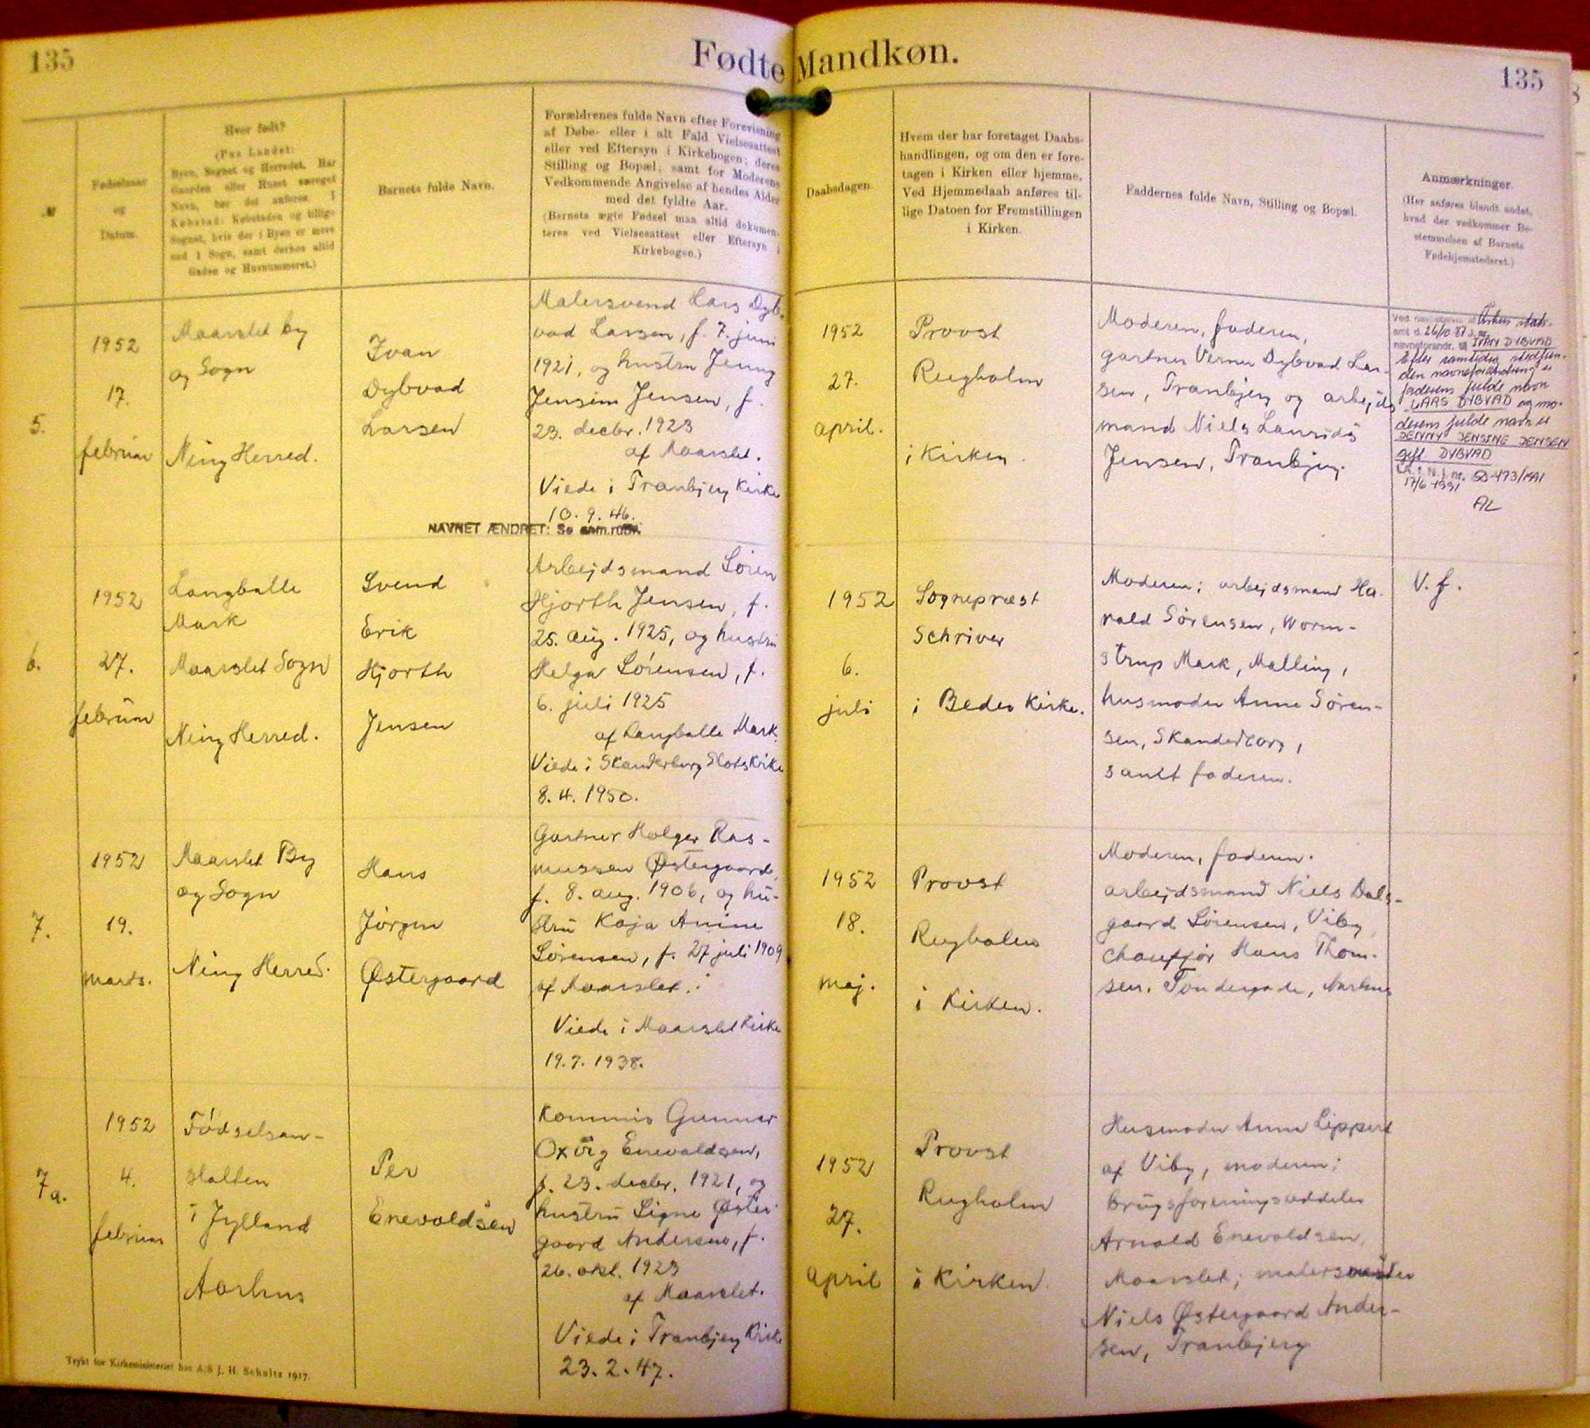 135
Fødte Mandkøn.
135
№
Fødselsaar
og
Datum.
Hvor født?
(Paa Landet:
Byen, Sognet og Herredet. Har
Gaarden eller Huset særeget
Navn, bør det anføres. I
Købstad: Købstaden og tillige
Sognet, hvis der i Byen er mere
end 1 Sogn, samt derhos altid
Gaden og Husnummeret.)
Barnets fulde Navn.
Forældrenes fulde Navn efter Forevisning
af Døbe- eller i alt Fald Vielsesattest
eller ved Eftersyn i Kirkebogen; deres
Stilling og Bopæl, samt for Moderens
Vedkommende Angivelse af hendes Alder
med det fyldte Aar.
(Barnets ægte Fødsel maa altid dokumen-
teres ved Vielsesattest eller Eftersyn i
Kirkebogen.)
Daabsdagen.
Hvem der har foretaget Daabs-
handlingen, og om den er fore-
tagen i Kirken eller hjemme.
Ved Hjemmedaab anføres til-
lige Datoen for Fremstillingen
i Kirken.
Faddernes fulde Navn, Stilling og Bopæl.
Anmærkninger.
(Her anføres blandt andet,
hvad der vedkommer Be-
stemmelsen af Barnets
Fødehjemstedsret.)
5.
1952
17.
februar
Maarslet by
og Sogn
Ning Herred.
Ivan
Dybvad
Larsen
Malersvend Lars Dyb-
vad Larsen, f. 7. juni
1921, og hustru Jenny
Jensine Jensen, f.
23. decbr. 1923
af Maarslet.
Viede i Tranbjerg Kirke
10. 9. 46.
NAVNET ÆNDRET: Se anm.rubr.
1952
27.
april.
Provst
Rugholm
i Kirken.
Moderen, faderen,
gartner Verner Dybvad Lar-
sen, Tranbjerg og arbejds
mand Niels Laurids
Jensen, Tranbjerg.
Århus stats-
amt d. 26/10 87
navneforandr. til IVAN DYBVAD
Efter samtidig stedfun-
den navneforandring er
faderens fulde navn
LARS DYBVAD og mo-
derens fulde navn er
JENNY JENSINE JENSEN
gift DYBVAD
17/6 1991
AL
6.
1952
27.
februar
Langballe
Mark
Maarslet Sogn
Ning Herred.
Svend
Erik
Hjorth
Jensen
Arbejdsmand Søren
Hjorth Jensen, f.
25. aug. 1925, og hustru
Helga Sørensen, f.
6. juli 1925
af Langballe Mark.
Viede i Skanderborg Slotskirke
8. 4. 1950.
1952
6.
juli
Sognepræst
Schriver
i Beder Kirke.
Moderen; arbejdsmand Ha-
rald Sørensen, Worm-
strup Mark, Malling,
husmoder Anne Søren-
sen, Skanderborg,
samt faderen.
V. f.
7.
1952
19.
marts.
Maarslet By
og Sogn
Ning Herred.
Hans
Jørgen
Østergaard
Gartner Holger Ras-
mussen Østergaard,
f. 8. aug. 1906, og hu-
stru Kaja Anine
Sørensen, f. 27 juli 1909
af Maarslet.
Viede i Maarslet Kirke
19. 7. 1938.
1952
18.
maj.
Provst
Rugholm
i Kirken.
Moderen, faderen.
arbejdsmand Niels Dals-
gaard Sørensen, Viby
chauffør Hans Thom-
sen, Tøndergade, Aarhus
7a.
1952
4.
februar
Fødselsan-
stalten
i Jylland
Aarhus
Per
Enevoldsen
Kommis Gunnar
Oxvig Enevoldsen,
f. 23. decbr. 1921, og
hustru Signe Øster-
gaard Andersen, f.
26. okt. 1923
af Maarslet.
Viede i Tranbjerg Kirke
23. 2. 47.
1952
27.
april
Provst
Rugholm
i Kirken.
Husmoder Anna Lippert
af Viby, moderen;
brugsforeningsuddeler
Arnold Enevoldsen,
Maarslet; malermester
Niels Østergaard Ander-
sen, Tranbjerg
Trykt for Kirkeministeriet hos A/S J. H. Schultz 1917.